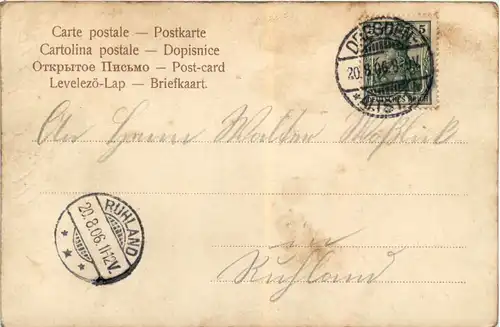 Carte postale — Postkarte
Cartolina postale — Dopisnice
Открытое Письмо — Post-card
Levelező-Lap — Briefkaart.
DRESDEN-
20.8.06.
* ALTST.
5
An Herrn Walter
in
Ruhland
RUHLAND
20.8.06.11-12V.
* * *